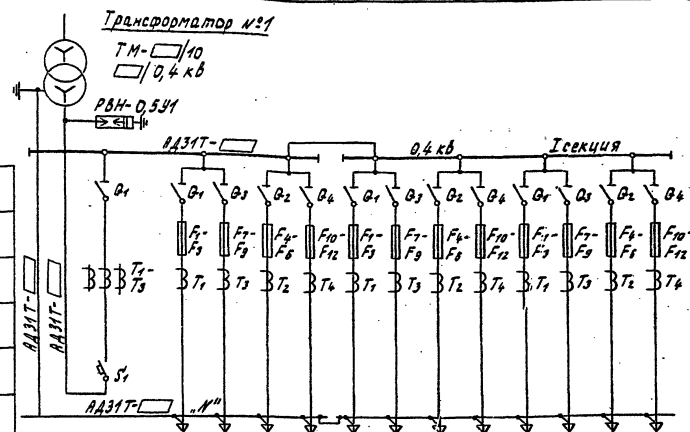 Трансформатор №1
ТМ-▭/10
▭/0,4 кв
РВН-0,5У1
АД31Т-▭
0,4 кв
I секция
Q1 Q1 Q3 Q2 Q4 Q1 Q3 Q2 Q4 Q1 Q3 Q2 Q4
F1-F3 F7-F9 F4-F6 F10-F12 F1-F3 F7-F9 F4-F6 F10-F12 F1-F3 F7-F9 F4-F6 F10-F12
T1-T3 T1 T3 T2 T4 T1 T3 T2 T4 T1 T3 T2 T4
АД31Т-▭
АД31Т-▭
S1
АД31Т-▭ „N"